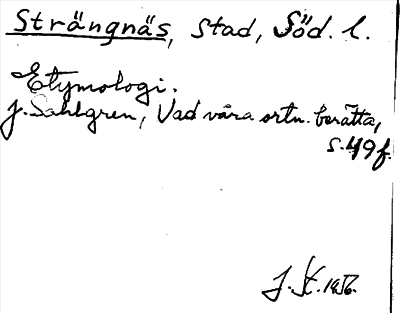 Strängnäs, stad, Söd. l.
Etymologi.
J. Sahlgren, Vad våra ortn. berätta,
s. 49 f.
J. St. 1956.